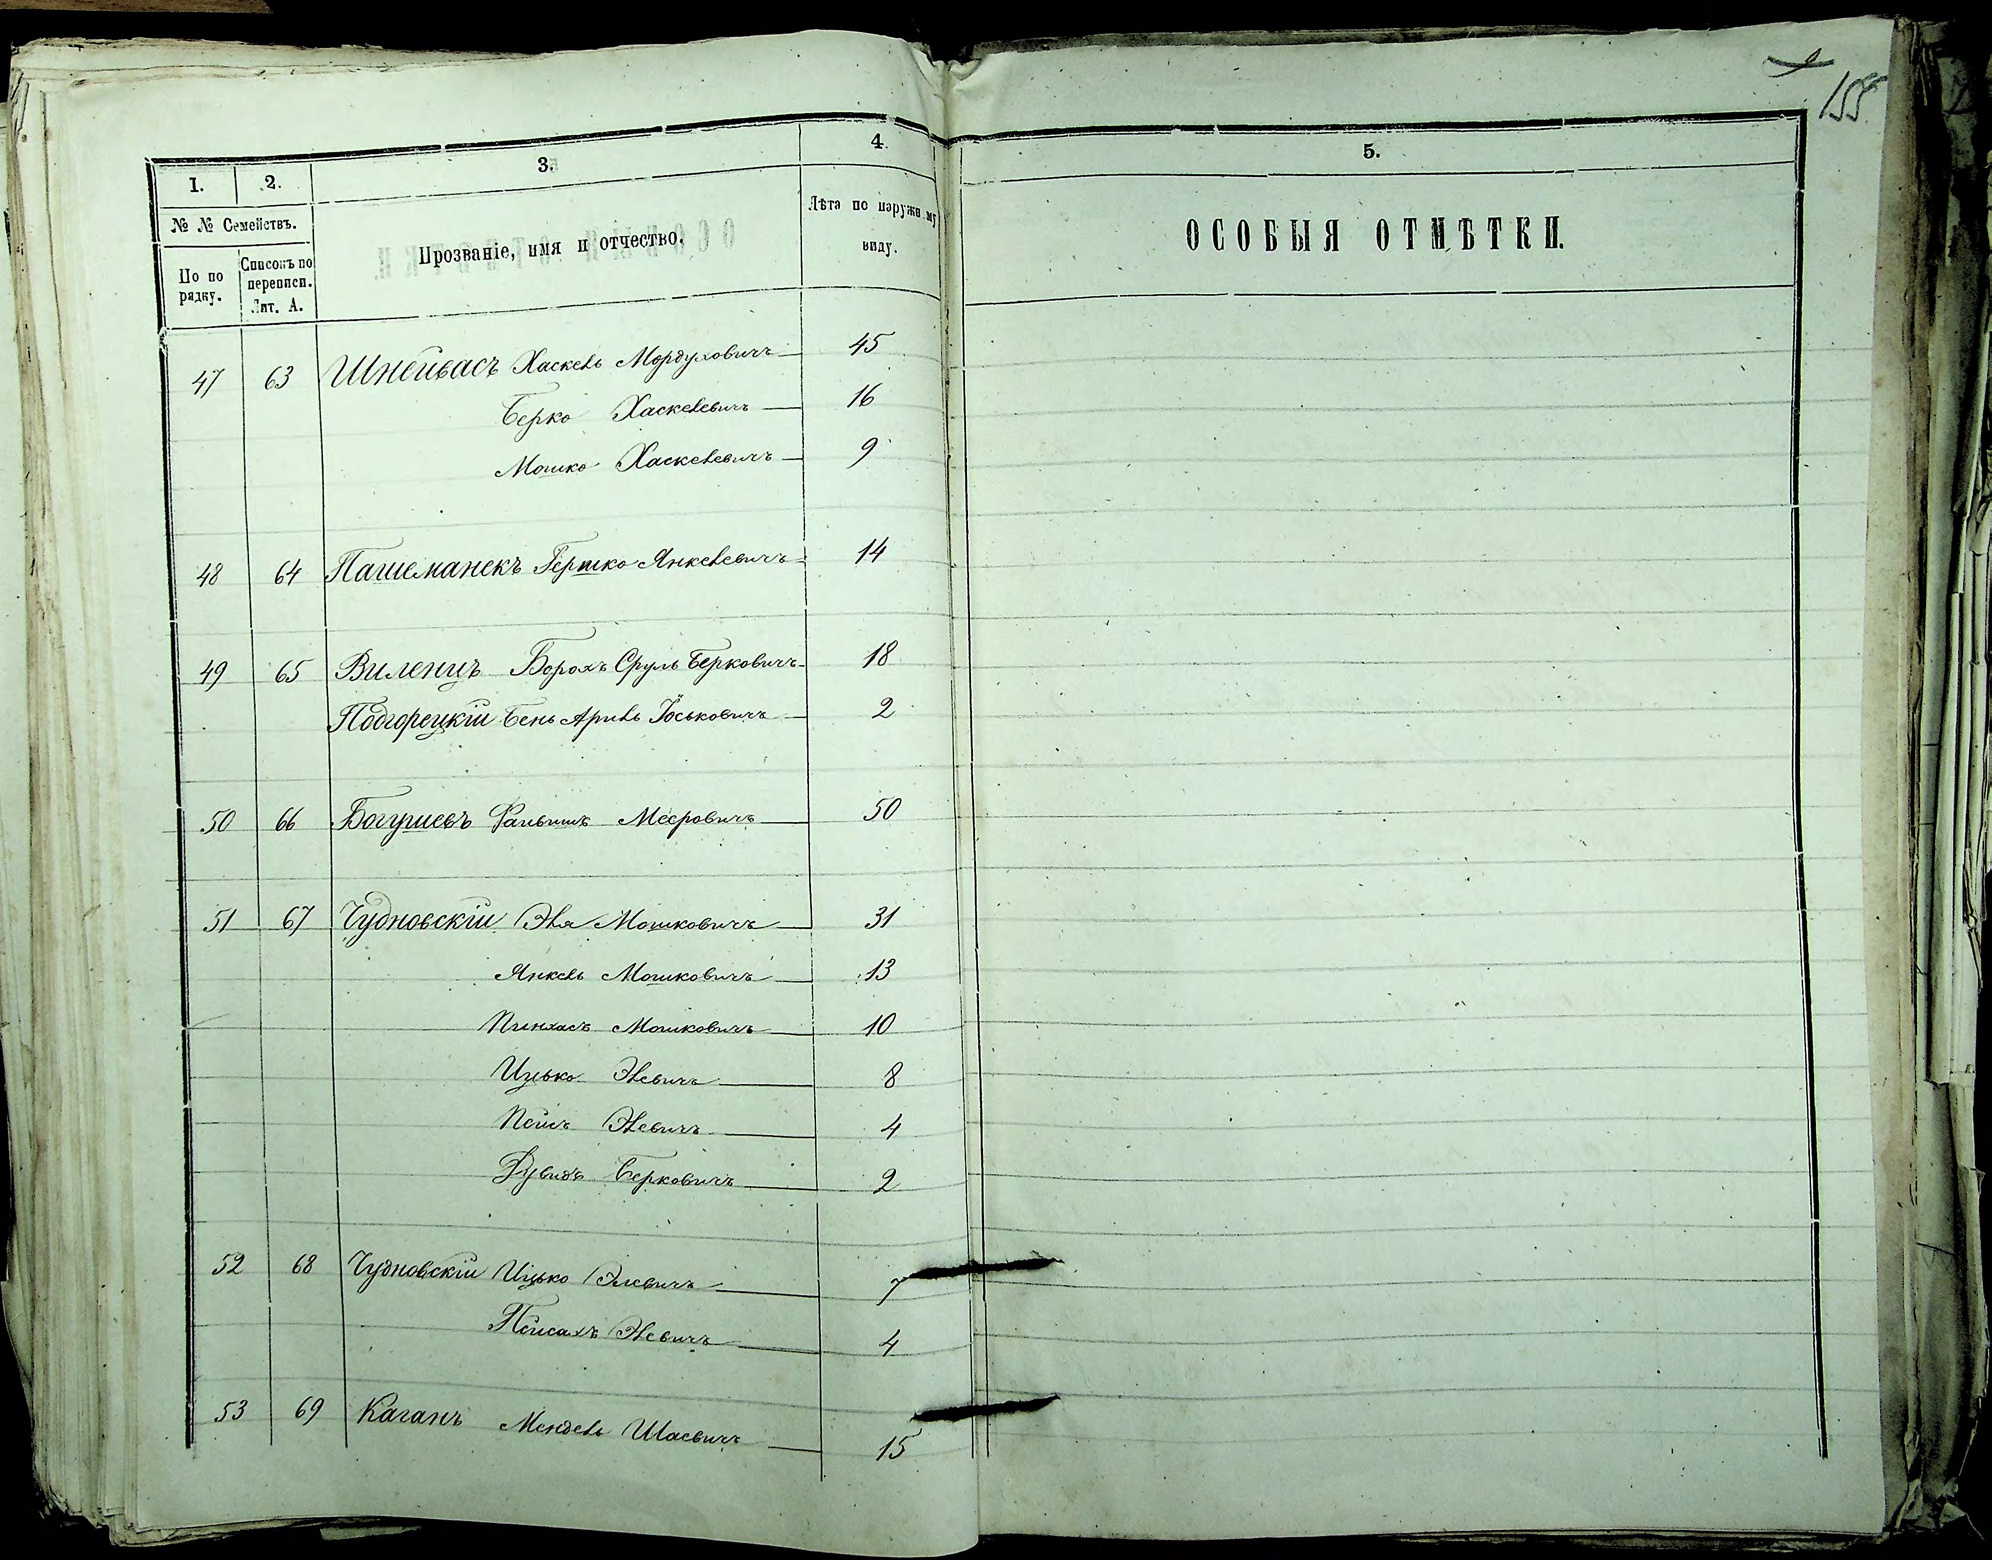 155
1. 2. 3. 4. 5.
№ № Семействъ.
По по рядку.
Списокъ по переписи. Лит. А.
Прозваніе, имя и отчество.
Лѣта по наружному виду.
ОСОБЫЯ ОТМѢТКИ.
47 63 Шнейвасъ Хаскель Мордуховичъ 45
Берко Хаскелевичъ 16
Мошко Хаскелевичъ 9
48 64 Пашеманекъ Гершко Янкелевичъ 14
49 65 Виленцъ Борохъ Сруль Берковичъ 18
Подгорецкій Бень Аріель Іоськовичъ 2
50 66 Богушевъ Файвишъ Мееровичъ 50
51 67 Чудновскій Эля Мошковичъ 31
Янкель Мошковичъ 13
Пинхасъ Мошковичъ 10
Ицько Элевичъ 8
Элевичъ 4
Берковичъ 2
52 68 Чудновскій Ицько Элевичъ 7
Пейсахъ Элевичъ 4
53 69 Каганъ Мендель Шаевичъ 15